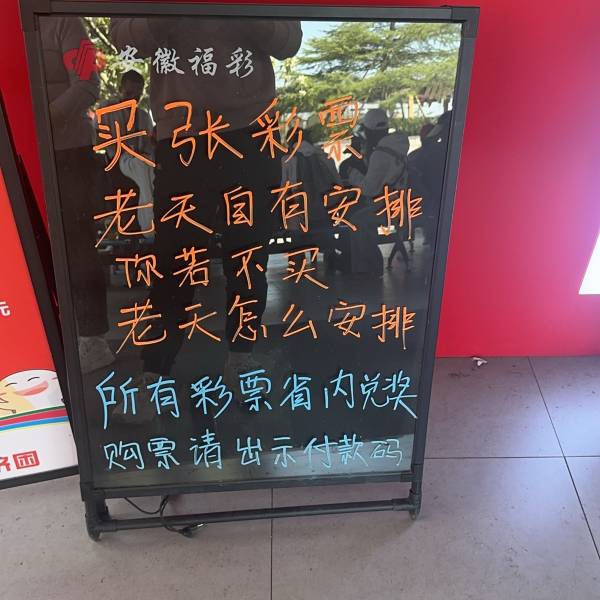 安徽福彩
买张彩票
老天自有安排
你若不买
老天怎么安排
所有彩票省内兑奖
购票请出示付款码